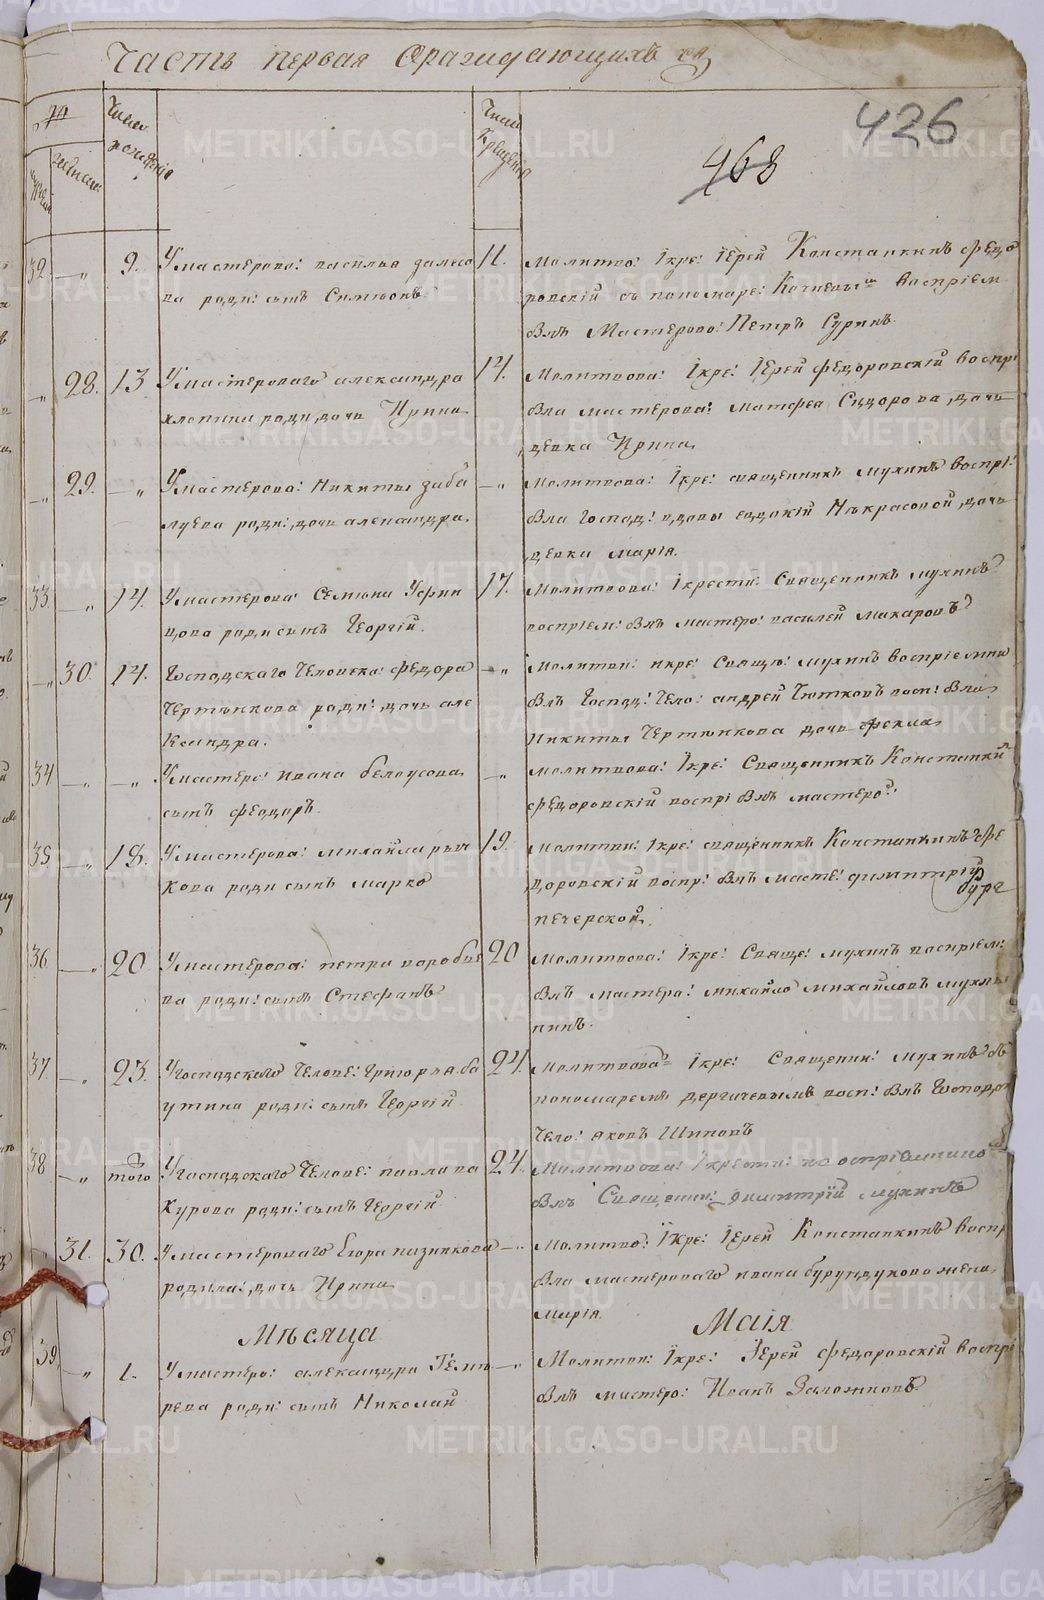 Часть первая
№
Число рождения
Число крещения
426
468
32. 9. У мастерово: василья
ва роди: сынъ Симеонъ.
11. Молитво: Iкре: Iерей Константинъ Федо
ровскiй съ пономаре: воспрiем
Былъ Мастерово: Петръ Суринъ.
28. 13 У мастероваго александра
хлопина роди дочь Ирина
14. Молитвова: Iкре: Iерей федоровскiй воспрi
была мастерова: матфеа Сидорова дочь
девка Ирина.
29. У мастерова: Никиты заба
луева роди: дочь александра.
Молитвова: Iкре: священникъ мухинъ воспрi:
была господ: вдовы евдокiй Некрасовой дочь
девка марiя.
33. 14. У мастерова: Семиона Уфин
цова роди сынъ Георгiй.
17. Молитвова: Iкрести: Священникъ мухинъ
воспрiем: былъ мастеро: василей макаровъ
30. 14. Господскаго Человека: федора
Чертенкова роди: дочь але
ксандра.
Молитви: икре: Свящо: мухинъ воспрiемни
Былъ Госпд: Чело: андрей восп: была
Никиты Чертенкова дочь фекла
34 У мастеро: ивана белоусова
сынъ феодоръ.
молитвова: Iкре: Священникъ Константи
федоровскiй воспрi былъ мастеро:
35 18. У мастерова: михайла рыч
кова роди сынъ марко
19. Молитви: Iкре: священникъ Константинъ Фе
доровскiй воспр: былъ масте: димитрiй
печерской.
36 20 У мастерова: петра воробье
ва роди: сынъ Стефанъ
20 Молитвова: Iкре: Свяще: мухинъ воспрiем:
былъ мастера: михайло михайловъ
нинъ.
37. 23. У господскаго Челове: григорья ба
утина роди: сынъ Георгiй
24. Молитвова: Iкре: Священни: мухинъ съ
пономаремъ дергачевымъ восп: былъ Господ
Чело: яковъ Шиповъ
38 того У господскаго Челове: павла ва
хурова роди: сынъ Георгiй
24. Молитвова: Iкрести: воспрiемнико
былъ Священни: димитрiй мухинъ
31. 30. У мастероваго Егора
родила: дочь Ирина
Молитво: Iкре: Iерей Константинъ воспр
была мастероваго ивана бурундукова жена
марiя.
Месяца Маiя
39. 1. У мастеро: александра
рева роди: сынъ Николай
Молитви: Iкре: Iерей федоровскiй воспрi
былъ мастеро: Иванъ Заложновъ
METRIKI.GASO-URAL.RU